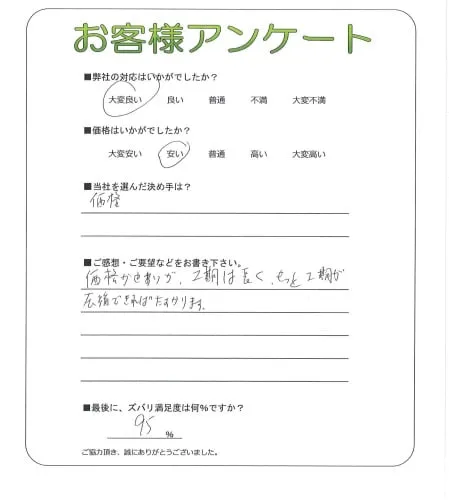 お客様アンケート
■弊社の対応はいかがでしたか？
大変良い 良い 普通 不満 大変不満
■価格はいかがでしたか？
大変安い 安い 普通 高い 大変高い
■当社を選んだ決め手は？
価格
■ご感想・ご要望などをお書き下さい。
価格が、工期は長く、もっと工期が
できればたすかります。
■最後に、ズバリ満足度は何％ですか？
95 ％
ご協力頂き、誠にありがとうございました。